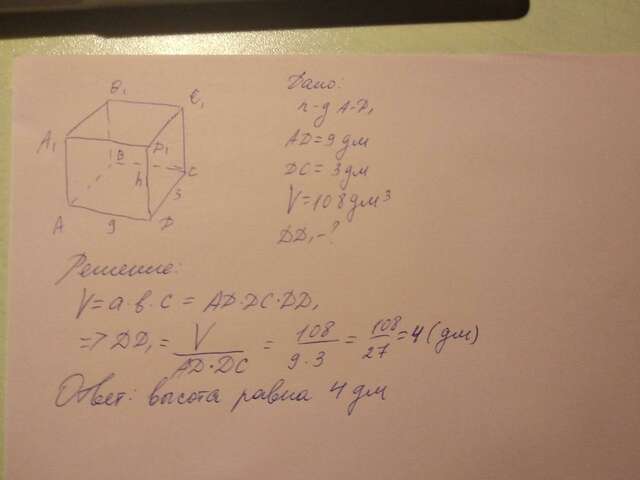 B₁
C₁
A₁
D₁
B
C
h
3
A
9
D
Дано:
п-д A-D₁
AD=9дм
DC=3дм
V=108дм³
DD₁-?
Решение:
V=a·b·c=AD·DC·DD₁
=>DD₁=V/AD·DC=108/9·3=108/27=4(дм)
Ответ: высота равна 4дм